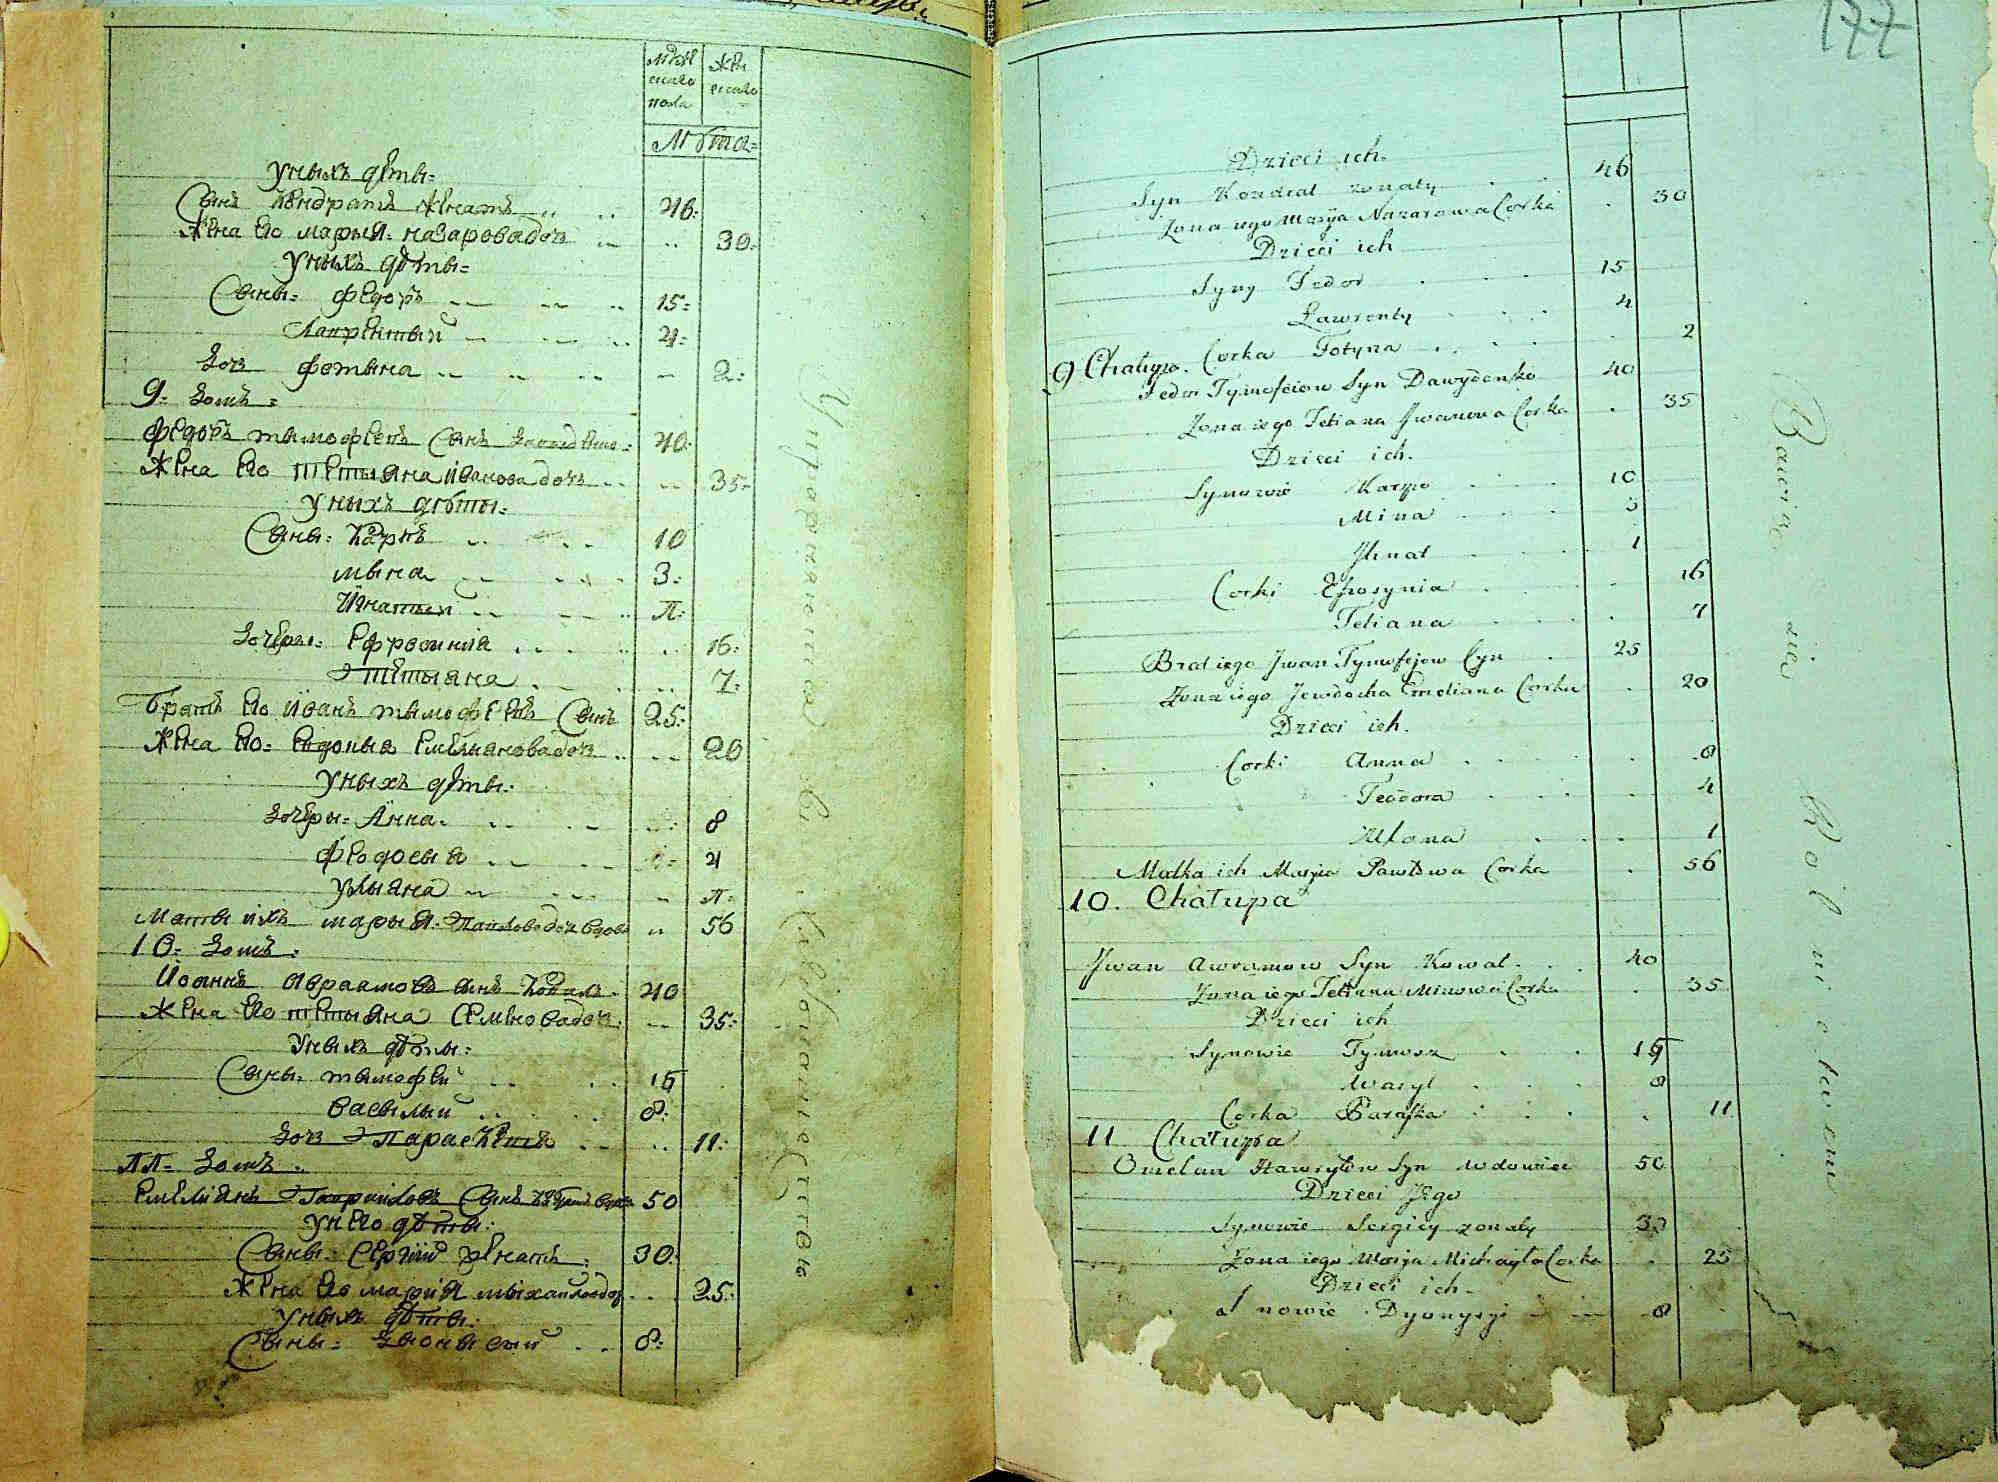 Мужескаго пола
Женскаго
Лѣта
У нихъ дѣты
Сынъ Кондратъ женатъ 46
Жена его Марыя Назарова дочь 30
У ныхъ дѣты
Сыны Федоръ 15
Лаврентый 4
Дочь Фотына 2
9 Домъ
Федоръ Тымофеевъ сынъ 40
Жена его Тетыяна Иванова дочь 35
У ныхъ дѣты
Сыны Карпъ 10
Мына 3
Игнатый 1
Дочеры Ефросиния 16
Тетыяна 7
Братъ его Иванъ Тымофеевъ сынъ 25
Жена его Евдокыя Емелианова дочь 20
У ныхъ дѣты
Дочеры Анна 8
Феодосыя 4
Улыяна 1
Маты ихъ Марыя Павлова дочь вдова 56
10 Домъ
Иоаннъ Авраамовъ сынъ Коваль 40
Жена его Тетыяна Семенова дочь 35
У ныхъ дѣты
Сыны Тымофей 15
Васылый 8
Дочь Параскевия 11
11 Домъ
Емелиянъ Гавриловъ сынъ 50
У него дѣты
Сыны Сергий женатъ 30
Жена его Мария Мыхайлова дочь 25
У ныхъ дѣты
Сыны Дыонысый 8
177
Dzieci ich
Syn Kondrat zonaty 46
Zona iego Maryia Nazarowa Corka 30
Dzieci ich
Syny Fedor 15
Ławrenty 4
Corka Fotyna 2
9 Chałupa
Fedor Tymofeiow Syn Dawydenko 40
Zona iego Tetiana Jwanowa Corka 35
Dzieci ich
Synowie Karpo 10
Mina 3
Jhnat 1
Corki Efrosynia 16
Tetiana 7
Brat iego Jwan Tymofejow Syn 25
Zona iego Jewdocha Emeliana Corka 20
Dzieci ich
Corki Anna 8
Teodora 4
Ulana 1
Matka ich Maryia Pawłowa Corka 56
10. Chałupa
Jwan Awramow Syn Kowal 40
Zona iego Tetiana Corka 35
Dzieci ich
Synowie Tymosz 15
Wasyl 8
Corka Paraska 11
11 Chałupa
Omelan Hawryłow Syn wdowiec 50
Dzieci Jego
Synowie Sergiey zonaty 30
Zona iego Maryia Michayła Corka 25
Dzieci ich
Synowie Dyonyzyi 8
Упражняются въ хлѣбопашествѣ
Bawią się Rolnictwem